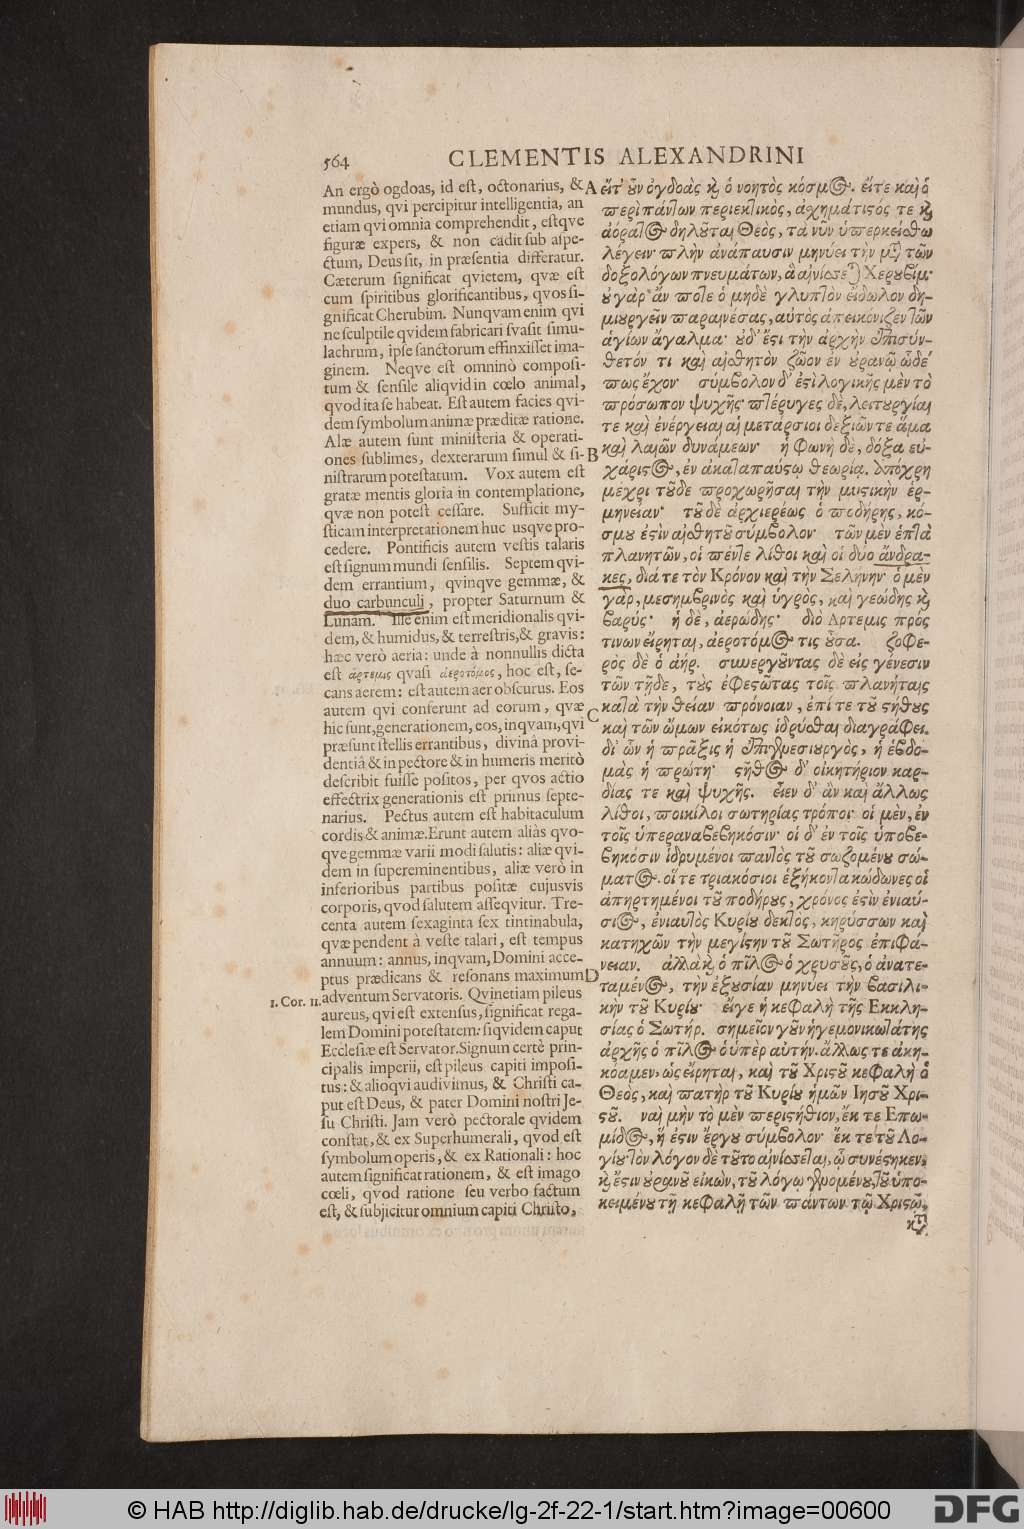 564
CLEMENTIS ALEXANDRINI
An ergò ogdoas, id est, octonarius, &
mundus, qvi percipitur intelligentia, an
etiam qvi omnia comprehendit, estqve
figuræ expers, & non cadit sub aspe-
ctum, Deus sit, in præsentia differatur.
Cæterum significat qvietem, qvæ est
cum spiritibus glorificantibus, qvos si-
gnificat Cherubim. Nunqvam enim qvi
ne sculptile qvidem fabricari svasit simu-
lachrum, ipse sanctorum effinxisset ima-
ginem. Neqve est omninò composi-
tum & sensile aliqvid in cœlo animal,
qvod ita se habeat. Est autem facies qvi-
dem symbolum animæ præditæ ratione.
Alæ autem sunt ministeria & operati-
ones sublimes, dexterarum simul & si-
nistrarum potestatum. Vox autem est
gratæ mentis gloria in contemplatione,
qvæ non potest cessare. Sufficit my-
sticam interpretationem huc usqve pro-
cedere. Pontificis autem vestis talaris
est signum mundi sensilis. Septem qvi-
dem errantium, qvinqve gemmæ, &
duo carbunculi, propter Saturnum &
Lunam. Ille enim est meridionalis qvi-
dem, & humidus, & terrestris, & gravis:
hæc verò aeria: unde à nonnullis dicta
est ἄρτεμις qvasi ἀεροτόμος, hoc est, se-
cans aerem: est autem aer obscurus. Eos
autem qvi conferunt ad eorum, qvæ
hic sunt, generationem, eos, inqvam, qvi
præsunt stellis errantibus, divinâ provi-
dentiâ & in pectore & in humeris meritò
describit fuisse positos, per qvos actio
effectrix generationis est primus septe-
narius. Pectus autem est habitaculum
cordis & animæ. Erunt autem aliàs qvo-
qve gemmæ varii modi salutis: aliæ qvi-
dem in supereminentibus, aliæ verò in
inferioribus partibus positæ cujusvis
corporis, qvod salutem asseqvitur. Tre-
centa autem sexaginta sex tintinabula,
qvæ pendent à veste talari, est tempus
annuum: annus, inqvam, Domini acce-
ptus prædicans & resonans maximum
1. Cor. 11.
adventum Servatoris. Qvinetiam pileus
aureus, qvi est extensus, significat rega-
lem Domini potestatem: siqvidem caput
Ecclesiæ est Servator. Signum certè prin-
cipalis imperii, est pileus capiti imposi-
tus: & alioqvi audivimus, & Christi ca-
put est Deus, & pater Domini nostri Je-
su Christi. Jam verò pectorale qvidem
constat, & ex Superhumerali, qvod est
symbolum operis, & ex Rationali: hoc
autem significat rationem, & est imago
cœli, qvod ratione seu verbo factum
est, & subjicitur omnium capiti Christo,
A
B
C
D
εἴτ' οὖν ὀγδοὰς καὶ ὁ νοητὸς κόσμος. εἴτε καὶ ὁ
περὶ πάντων περιεκτικὸς, ἀχημάτιστός τε καὶ
ἀόρατος δηλοῦται Θεὸς, τὰ νῦν ὑπερκείσθω
λέγειν· πλὴν ἀνάπαυσιν μηνύει τὴν μετὰ τῶν
δοξολόγων πνευμάτων, ἃ αἰνίσσεται Χερουβίμ·
οὐ γὰρ ἄν ποτε ὁ μηδὲ γλυπτὸν εἴδωλον δη-
μιουργεῖν παραινέσας, αὐτὸς ἀπεικόνιζεν τῶν
ἁγίων ἄγαλμα· οὐδ' ἔστι τὴν ἀρχὴν ἐπισύν-
θετόν τι καὶ αἰσθητὸν ζῶον ἐν οὐρανῷ ὧδέ
πως ἔχον· σύμβολον δ' ἐστὶ λογικῆς μὲν τὸ
πρόσωπον ψυχῆς· πτέρυγες δὲ, λειτουργίαι
τε καὶ ἐνέργειαι αἱ μετάρσιοι δεξιῶν τε ἅμα
καὶ λαιῶν δυνάμεων· ἡ φωνὴ δὲ, δόξα εὐ-
χάριστος, ἐν ἀκαταπαύστῳ θεωρίᾳ. ἀπόχρη
μέχρι τοῦδε προχωρῆσαι τὴν μυστικὴν ἑρ-
μηνείαν· τοῦ δὲ ἀρχιερέως ὁ ποδήρης, κό-
σμου ἐστὶν αἰσθητοῦ σύμβολον· τῶν μὲν ἑπτὰ
πλανητῶν, οἱ πέντε λίθοι καὶ οἱ δύο ἄνδρα-
κες, διά τε τὸν Κρόνον καὶ τὴν Σελήνην· ὁ μὲν
γὰρ, μεσημβρινὸς καὶ ὑγρὸς, καὶ γεώδης καὶ
βαρύς· ἡ δὲ, ἀερώδης· διὸ Αρτεμις πρός
τινων εἴρηται, ἀεροτόμος τις οὖσα. ζοφε-
ρὸς δὲ ὁ ἀήρ. συνεργοῦντας δὲ εἰς γένεσιν
τῶν τῇδε, τοὺς ἐφεστῶτας τοῖς πλανήταις
κατὰ τὴν θείαν πρόνοιαν, ἐπί τε τοῦ στήθους
καὶ τῶν ὤμων εἰκότως ἱδρύσθαι διαγράφει.
δι' ὧν ἡ πρᾶξις ἡ ἐπιγενεσιουργὸς, ἡ ἑβδο-
μὰς ἡ πρώτη· στῆθος δ' οἰκητήριον καρ-
δίας τε καὶ ψυχῆς. εἶεν δ' ἂν καὶ ἄλλως
λίθοι, ποικίλοι σωτηρίας τρόποι· οἱ μὲν, ἐν
τοῖς ὑπεραναβεβηκόσιν· οἱ δ' ἐν τοῖς ὑποβε-
βηκόσιν ἱδρυμένοι παντὸς τοῦ σωζομένου σώ-
ματος. οἵ τε τριακόσιοι ἑξήκοντα κώδωνες οἱ
ἀπηρτημένοι τοῦ ποδήρους, χρόνος ἐστὶν ἐνιαύ-
σιος, ἐνιαυτὸς Κυρίου δεκτὸς, κηρύσσων καὶ
κατηχῶν τὴν μεγίστην τοῦ Σωτῆρος ἐπιφά-
νειαν. ἀλλὰ καὶ ὁ πῖλος ὁ χρυσοῦς, ὁ ἀνατε-
ταμένος, τὴν ἐξουσίαν μηνύει τὴν βασιλι-
κὴν τοῦ Κυρίου· εἴγε ἡ κεφαλὴ τῆς Εκκλη-
σίας ὁ Σωτήρ. σημεῖον γοῦν ἡγεμονικωτάτης
ἀρχῆς ὁ πῖλος ὁ ὑπὲρ αὐτήν. ἄλλως τε ἀκη-
κόαμεν, ὡς εἴρηται, καὶ τοῦ Χριστοῦ κεφαλὴ ὁ
Θεὸς, καὶ πατὴρ τοῦ Κυρίου ἡμῶν Ιησοῦ Χρι-
στοῦ. ναὶ μὴν τὸ μὲν περιστήθιον, ἔκ τε Επω-
μίδος, ἥ ἐστιν ἔργου σύμβολον· ἔκ τε τοῦ Λο-
γίου· τὸν λόγον δὲ τοῦτο αἰνίσσεται, ᾧ συνέστηκεν.
καὶ ἔστιν οὐρανοῦ εἰκὼν, τοῦ λόγῳ γενομένου, τοῦ ὑπο-
κειμένου τῇ κεφαλῇ τῶν πάντων τῷ Χριστῷ,
© HAB http://diglib.hab.de/drucke/lg-2f-22-1/start.htm?image=00600
DFG